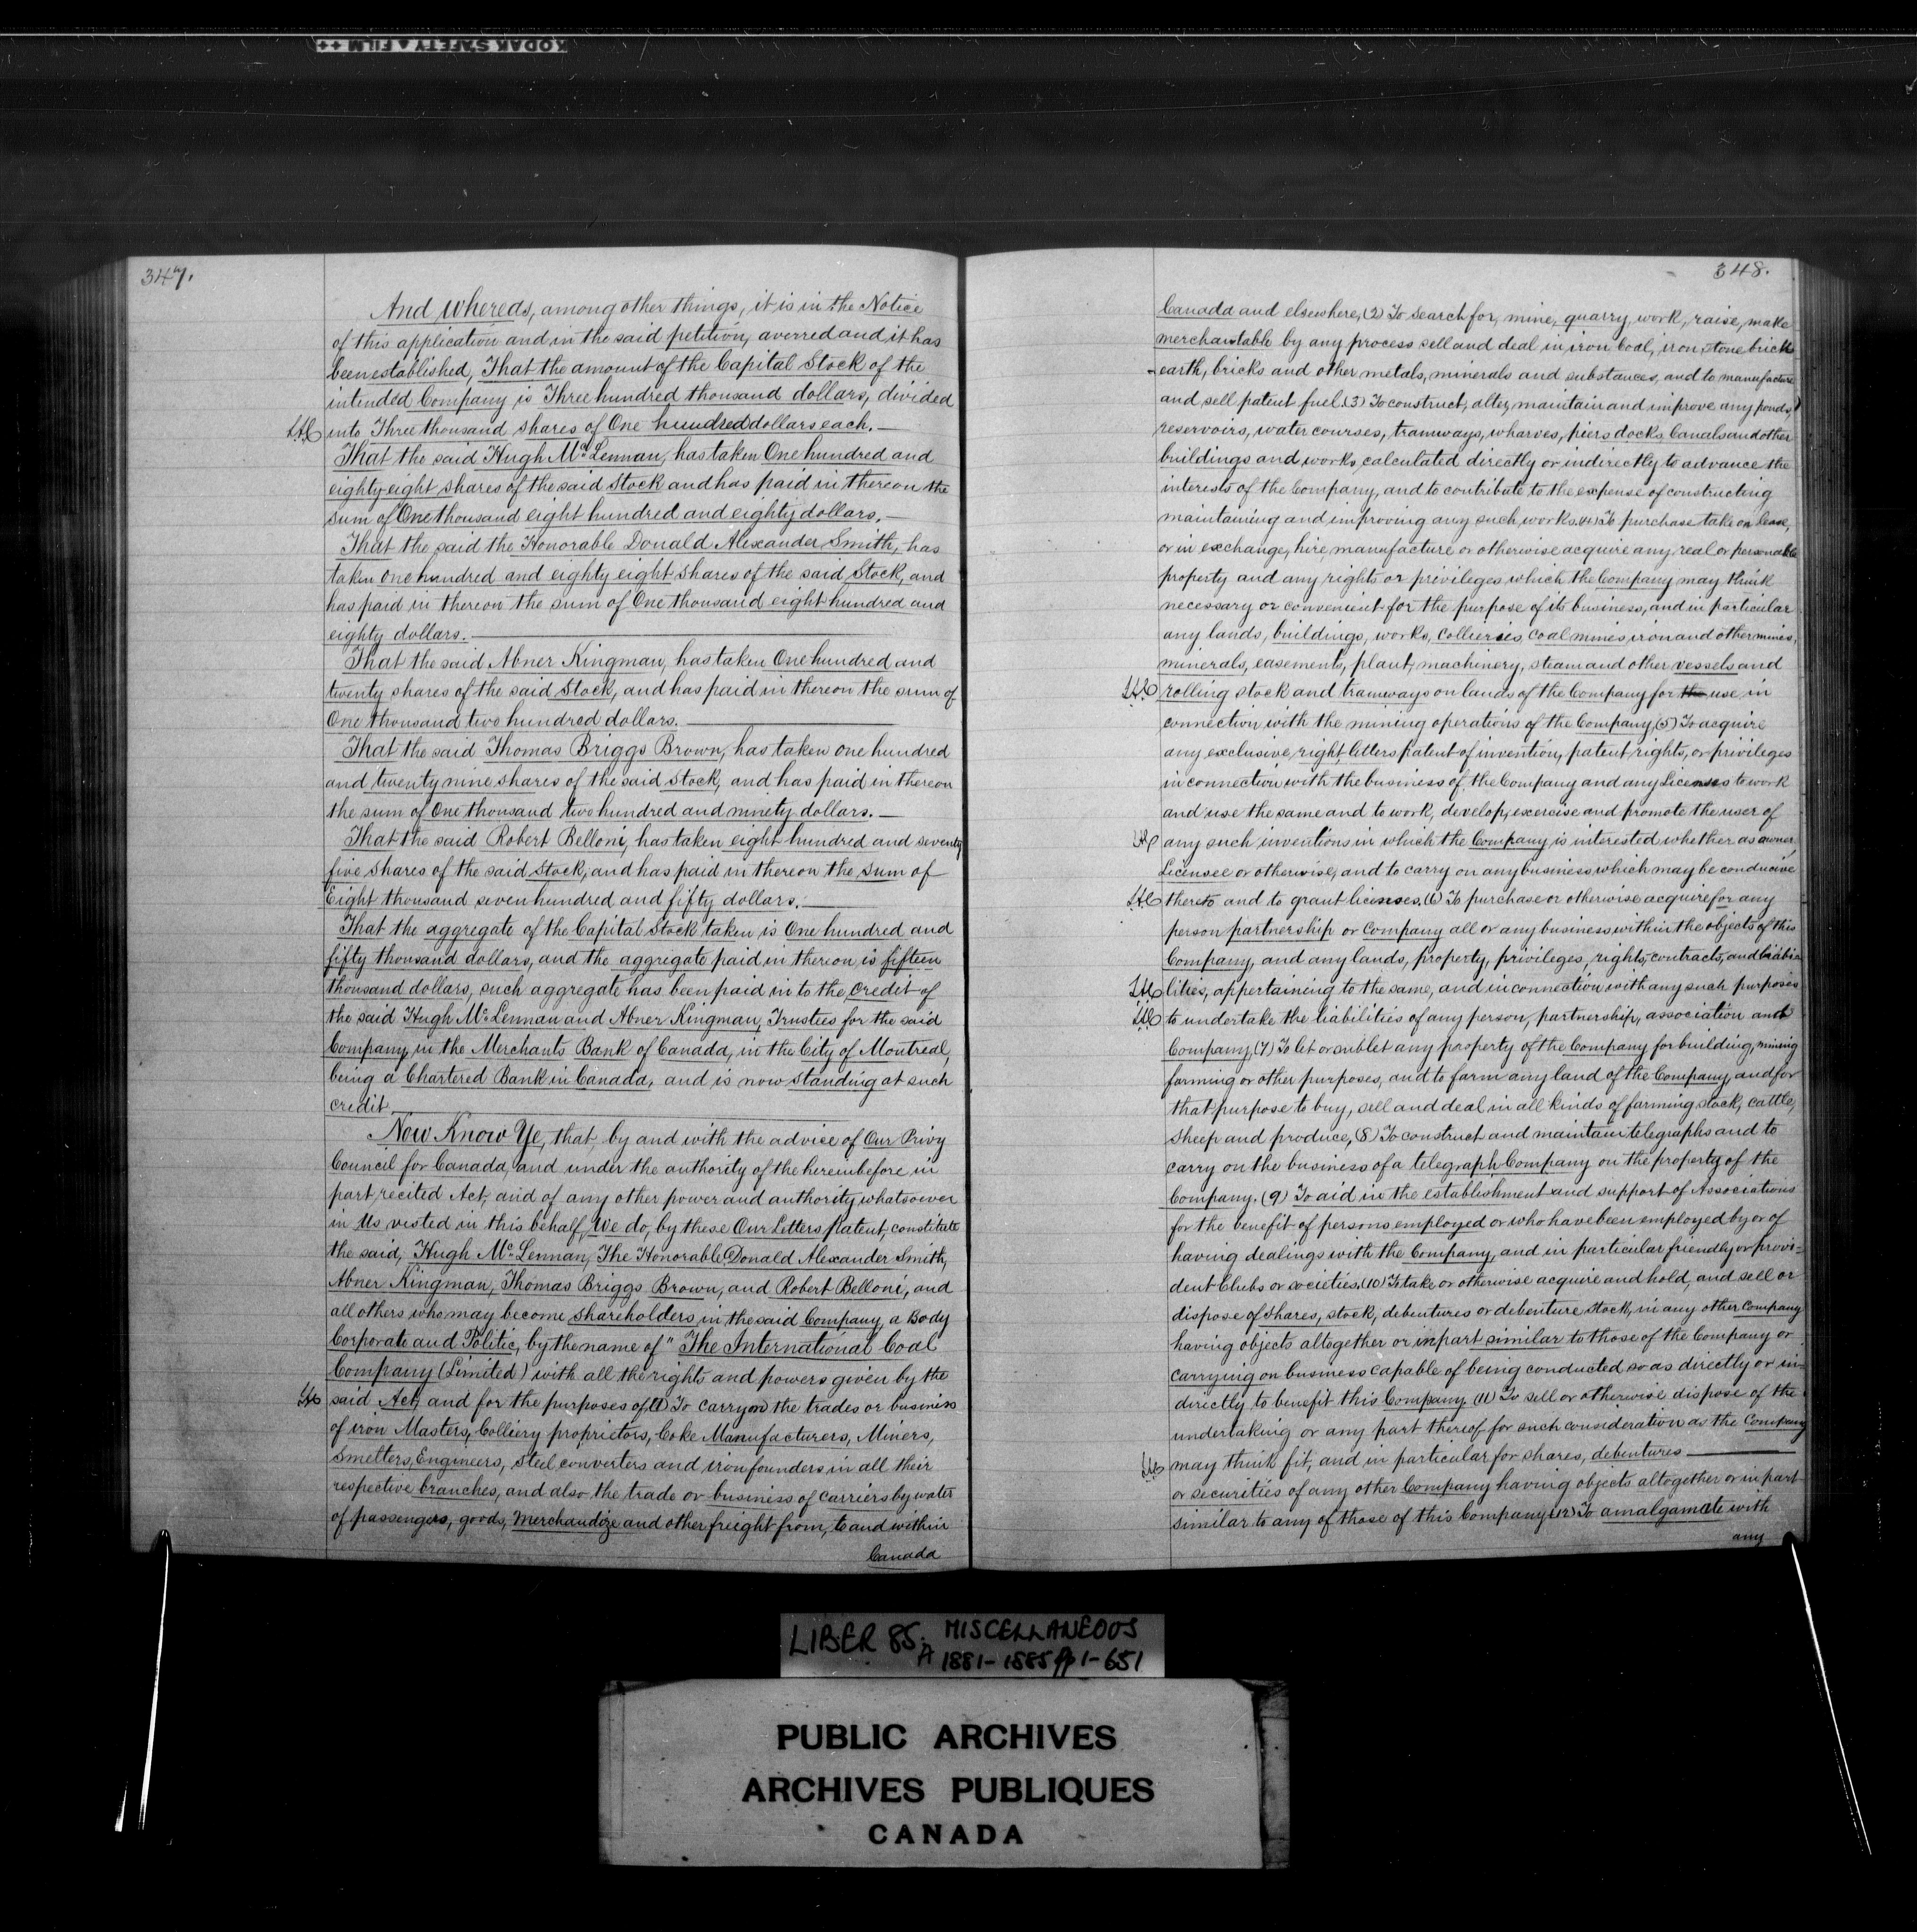 KODAK SAFETY FILM ++
347.
And Whereas, among other things, it is in the Notice
of this application and in the said petition, averred and it has
been established, That the amount of the Capital Stock of the
intended Company is Three hundred thousand dollars, divided
into Three thousand shares of One hundred dollars each. —
That the said Hugh McLennan, has taken One hundred and
eighty eight shares of the said Stock and has paid in thereon the
sum of One thousand eight hundred and eighty dollars. —
That the said the Honorable Donald Alexander Smith, has
taken One hundred and eighty eight shares of the said Stock, and
has paid in thereon the sum of One thousand eight hundred and
eighty dollars. —
That the said Abner Kingman, has taken One hundred and
twenty shares of the said Stock, and has paid in thereon the sum of
One thousand two hundred dollars. —
That the said Thomas Briggs Brown, has taken one hundred
and twenty nine shares of the said Stock, and has paid in thereon
the sum of One thousand two hundred and ninety dollars. —
That the said Robert Belloni, has taken eight hundred and seventy
five shares of the said Stock, and has paid in thereon the sum of
Eight thousand seven hundred and fifty dollars. —
That the aggregate of the Capital Stock taken is One hundred and
fifty thousand dollars, and the aggregate paid in thereon is fifteen
thousand dollars, such aggregate has been paid in to the credit of
the said Hugh McLennan and Abner Kingman, Trustees for the said
Company, in the Merchants Bank of Canada, in the City of Montreal,
being a Chartered Bank in Canada, and is now standing at such
credit —
Now Know Ye, that, by and with the advice of Our Privy
Council for Canada, and under the authority of the hereinbefore in
part, recited Act, and of any other power and authority whatsoever
in Us vested in this behalf, We do, by these Our Letters Patent, constitute
the said, Hugh McLennan, The Honorable Donald Alexander Smith,
Abner Kingman, Thomas Briggs Brown, and Robert Belloni, and
all others who may become shareholders in the said Company, a Body
Corporate and Politic, by the name of "The International Coal
Company (Limited) with all the rights and powers given by the
said Act, and for the purposes of, (1) To carry on the trades or business
of iron Masters, Colliery proprietors, Coke Manufacturers, Miners,
Smelters, Engineers, Steel converters and iron founders in all their
respective branches, and also the trade or business of carriers by water
of passengers, goods, Merchandize and other freight from, to and within
Canada
348.
Canada and elsewhere, (2) To search for, mine, quarry, work, raise, make
merchantable by any process sell and deal in iron Coal, iron, stone brick
- earth, bricks and other metals, minerals and substances, and to manufacture
and sell patent fuel. (3) To construct, alter, maintain and improve any ponds,
reservoirs, water courses, tramways, wharves, piers docks, Canals and other
buildings and works, calculated directly or indirectly to advance the
interests of the Company, and to contribute to the expense of constructing
maintaining and improving any such works. (4) To purchase take on lease,
or in exchange, hire, manufacture or otherwise acquire any real or personable
property and any rights or privileges which the Company may think
necessary or convenient for the purpose of its business, and in particular
any lands, buildings, works, collieries, coal mines iron and other mines,
minerals, easements, plant, machinery, steam and other vessels and
rolling stock and tramways on lands of the Company for the use in
connection with the mining operations of the Company, (5) To acquire
any exclusive, right, letters patent of invention, patent rights, or privileges
in connection with the business of the Company and any Licenses to work
and use the same and to work, develop, exercise and promote the user of
any such inventions in which the Company is interested whether as owner
Licensee or otherwise, and to carry on any business which may be conducive
thereto and to grant licenses. (6) To purchase or otherwise acquire for any
person partnership or Company all or any business within the objects of this
Company, and any lands, property, privileges, rights, contracts, and liabi-
lities, appertaining to the same, and in connection with any such purposes
to undertake the liabilities of any person, partnership, association and
Company, (7) To let or sublet any property of the Company for building, mining
farming or other purposes, and to farm any land of the Company, and for
that purpose to buy, sell and deal in all kinds of farming stock, cattle,
sheep and produce, (8) To construct and maintain telegraphs and to
carry on the business of a telegraph Company on the property of the
Company. (9) To aid in the establishment and support of Associations
for the benefit of persons employed or who have been employed by or of
having dealings with the Company, and in particular friendly or provi=
dent Clubs or societies. (10) To take or otherwise acquire and hold, and sell or
dispose of shares, stock, debentures or debenture stock, in any other Company
having objects altogether or in part similar to those of the Company or
carrying on business capable of being conducted so as directly or in-
directly to benefit this Company. (11) To sell or otherwise dispose of the
undertaking or any part thereof for such consideration as the Company
may think fit, and in particular for shares, debentures —
or securities of any other Company having objects altogether or in part
similar to any of those of this Company (12) To amalgamate with
any
LIBER 85 A MISCELLANEOUS
1881-1885 pp 1-651
PUBLIC ARCHIVES
ARCHIVES PUBLIQUES
CANADA